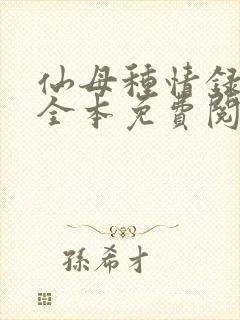 仙母種情録
全本免費閱
孫希才